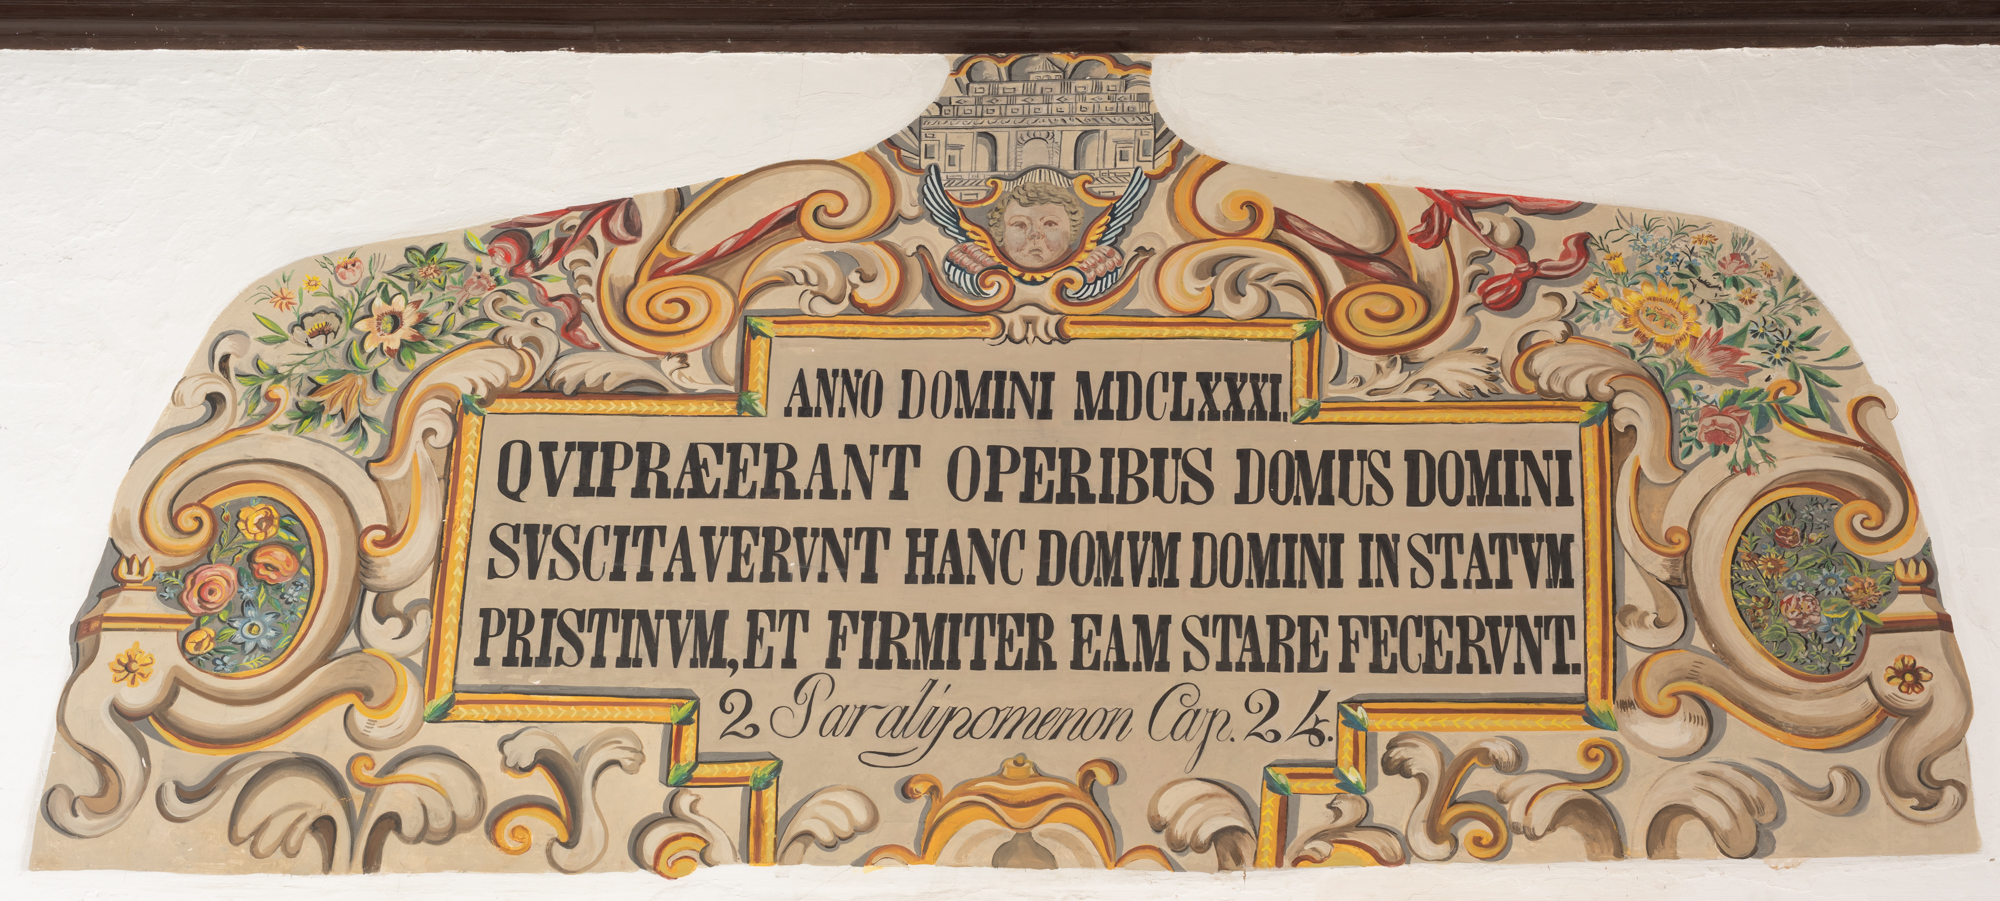 ANNO DOMINI MDCLXXXI.
QVIPRÆERANT OPERIBUS DOMUS DOMINI
SVSCITAVERVNT HANC DOMVM DOMINI IN STATVM
PRISTINVM, ET FIRMITER EAM STARE FECERVNT.
2 Paralipomenon Cap. 24.